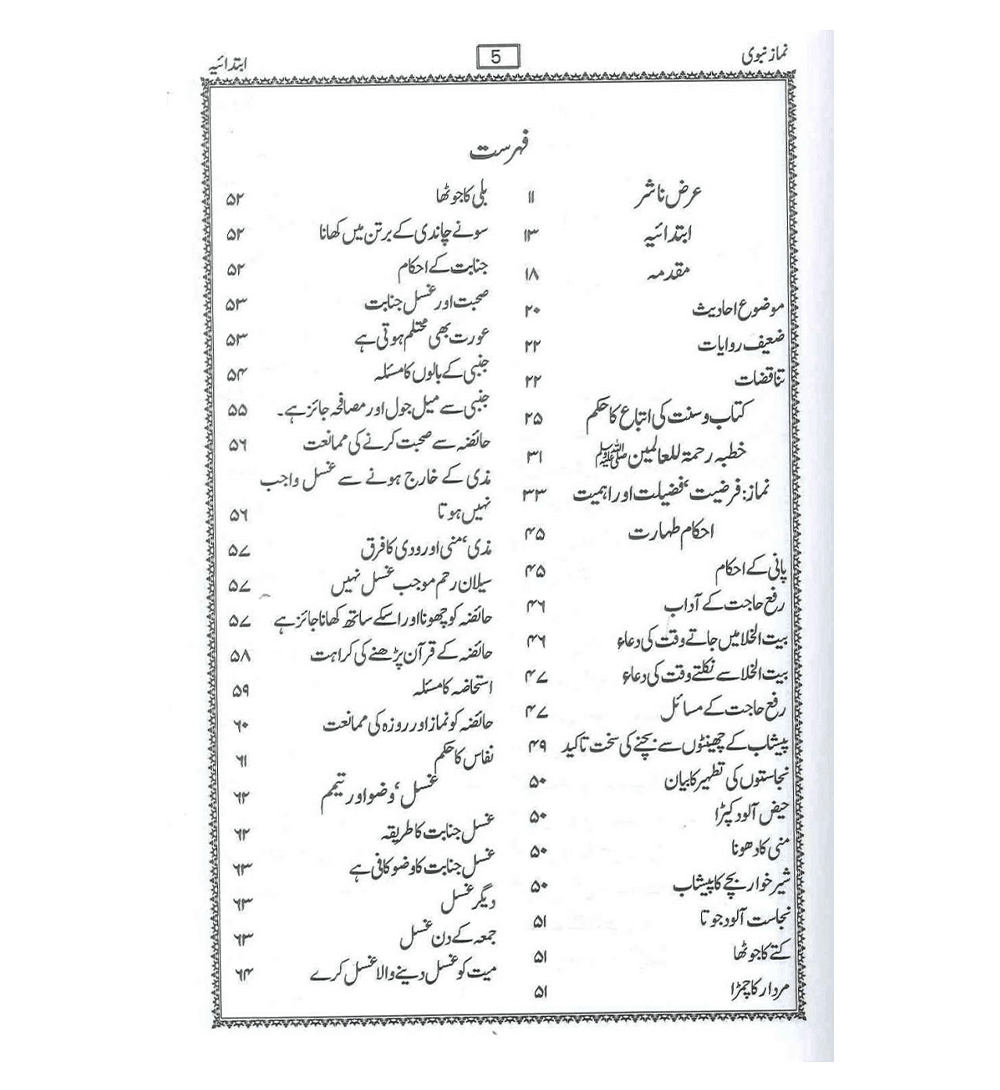 نماز نبوی 5 ابتدائیہ
فہرست
عرض ناشر ۱۱
ابتدائیہ ۱۳
مقدمہ ۱۸
موضوع احادیث ۲۰
ضعیف روایات ۲۲
تناقضات ۲۲
کتاب و سنت کی اتباع کا حکم ۲۵
خطبہ رحمۃ للعالمین ﷺ ۳۱
نماز: فرضیت، فضیلت اور اہمیت ۳۳
احکام طہارت ۴۵
پانی کے احکام ۴۵
رفع حاجت کے آداب ۴۶
بیت الخلا میں جاتے وقت کی دعاء ۴۶
بیت الخلا سے نکلتے وقت کی دعاء ۴۷
رفع حاجت کے مسائل ۴۷
پیشاب کے چھینٹوں سے بچنے کی سخت تاکید ۴۹
نجاستوں کی تطہیر کا بیان ۵۰
حیض آلود کپڑا ۵۰
منی کا دھونا ۵۰
شیر خوار بچے کا پیشاب ۵۰
نجاست آلود جوتا ۵۱
کتے کا جوٹھا ۵۱
مردار کا چمڑا ۵۱
بلی کا جوٹھا ۵۲
سونے چاندی کے برتن میں کھانا ۵۲
جنابت کے احکام ۵۲
صحبت اور غسل جنابت ۵۳
عورت بھی محتلم ہوتی ہے ۵۳
جنبی کے بالوں کا مسئلہ ۵۴
جنبی سے میل جول اور مصافحہ جائز ہے۔ ۵۵
حائضہ سے صحبت کرنے کی ممانعت ۵۶
مذی کے خارج ہونے سے غسل واجب
نہیں ہوتا ۵۶
مذی، منی اور ودی کا فرق ۵۷
سیلان رحم موجب غسل نہیں ۵۷
حائضہ کو چھونا اور اسکے ساتھ کھانا جائز ہے ۵۷
حائضہ کے قرآن پڑھنے کی کراہت ۵۸
استحاضہ کا مسئلہ ۵۹
حائضہ کو نماز اور روزہ کی ممانعت ۶۰
نفاس کا حکم ۶۱
غسل، وضو اور تیمم ۶۲
غسل جنابت کا طریقہ ۶۲
غسل جنابت کا وضو کافی ہے ۶۳
دیگر غسل ۶۳
جمعہ کے دن غسل ۶۳
میت کو غسل دینے والا غسل کرے ۶۴